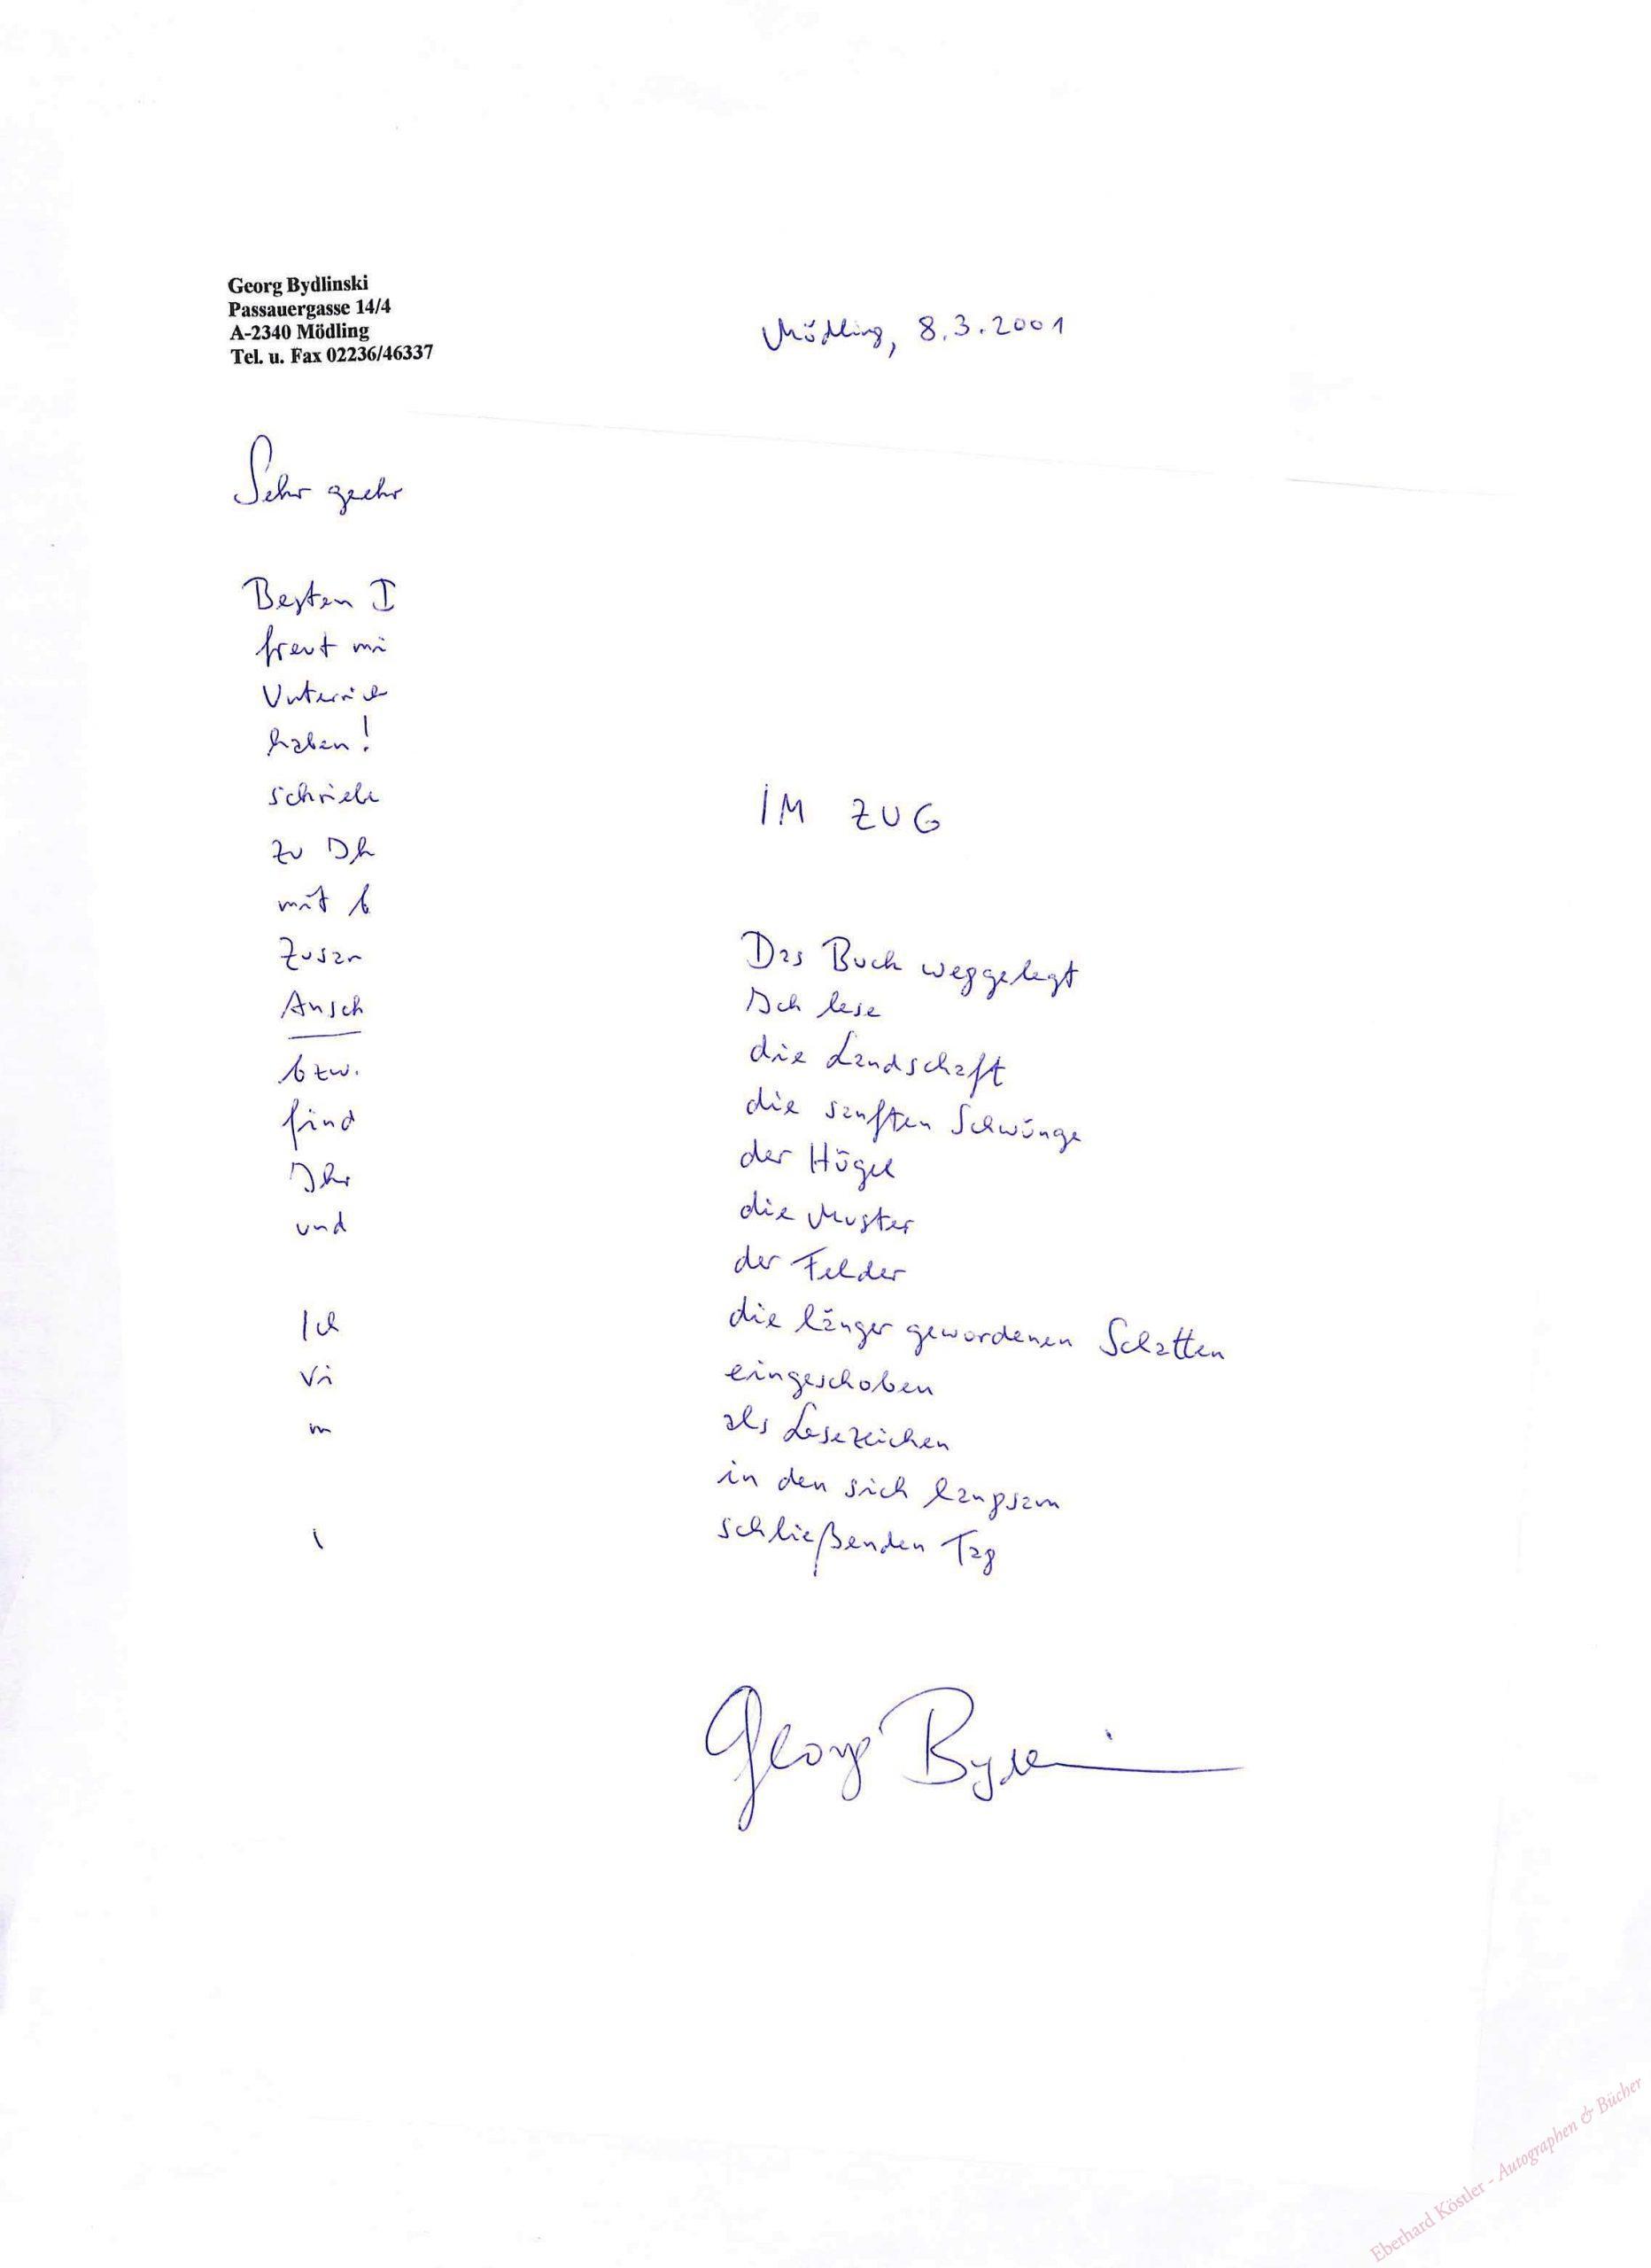 Georg Bydlinski
Passauergasse 14/4
A-2340 Mödling
Tel. u. Fax 02236/46337
Mödling, 8.3.2001
Sehr geehr
Besten
freut mi
Unterrich
haben!
schriebe
zu Ih
mit b
Zusam
Ansch
bzw.
find
Ihr
und
Ich
Vi
m
IM ZUG
Das Buch weggelegt
Ich lese
die Landschaft
die sanften Schwünge
der Hügel
die Muster
der Felder
die länger gewordenen Schatten
eingeschoben
als Lesezeichen
in den sich langsam
schließenden Tag
Georg Bydlinski
Eberhard Köstler - Autographen & Bücher